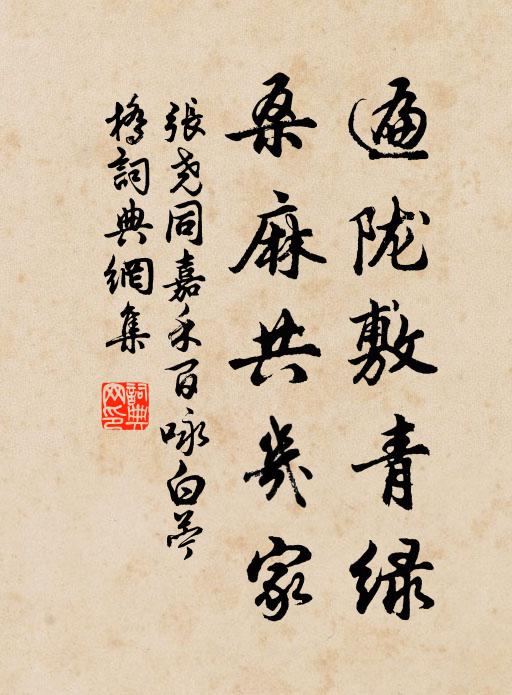 遍陇敷青绿
桑麻共几家
張尧同嘉禾百咏白苎
橋詞典網集
詞典
网印